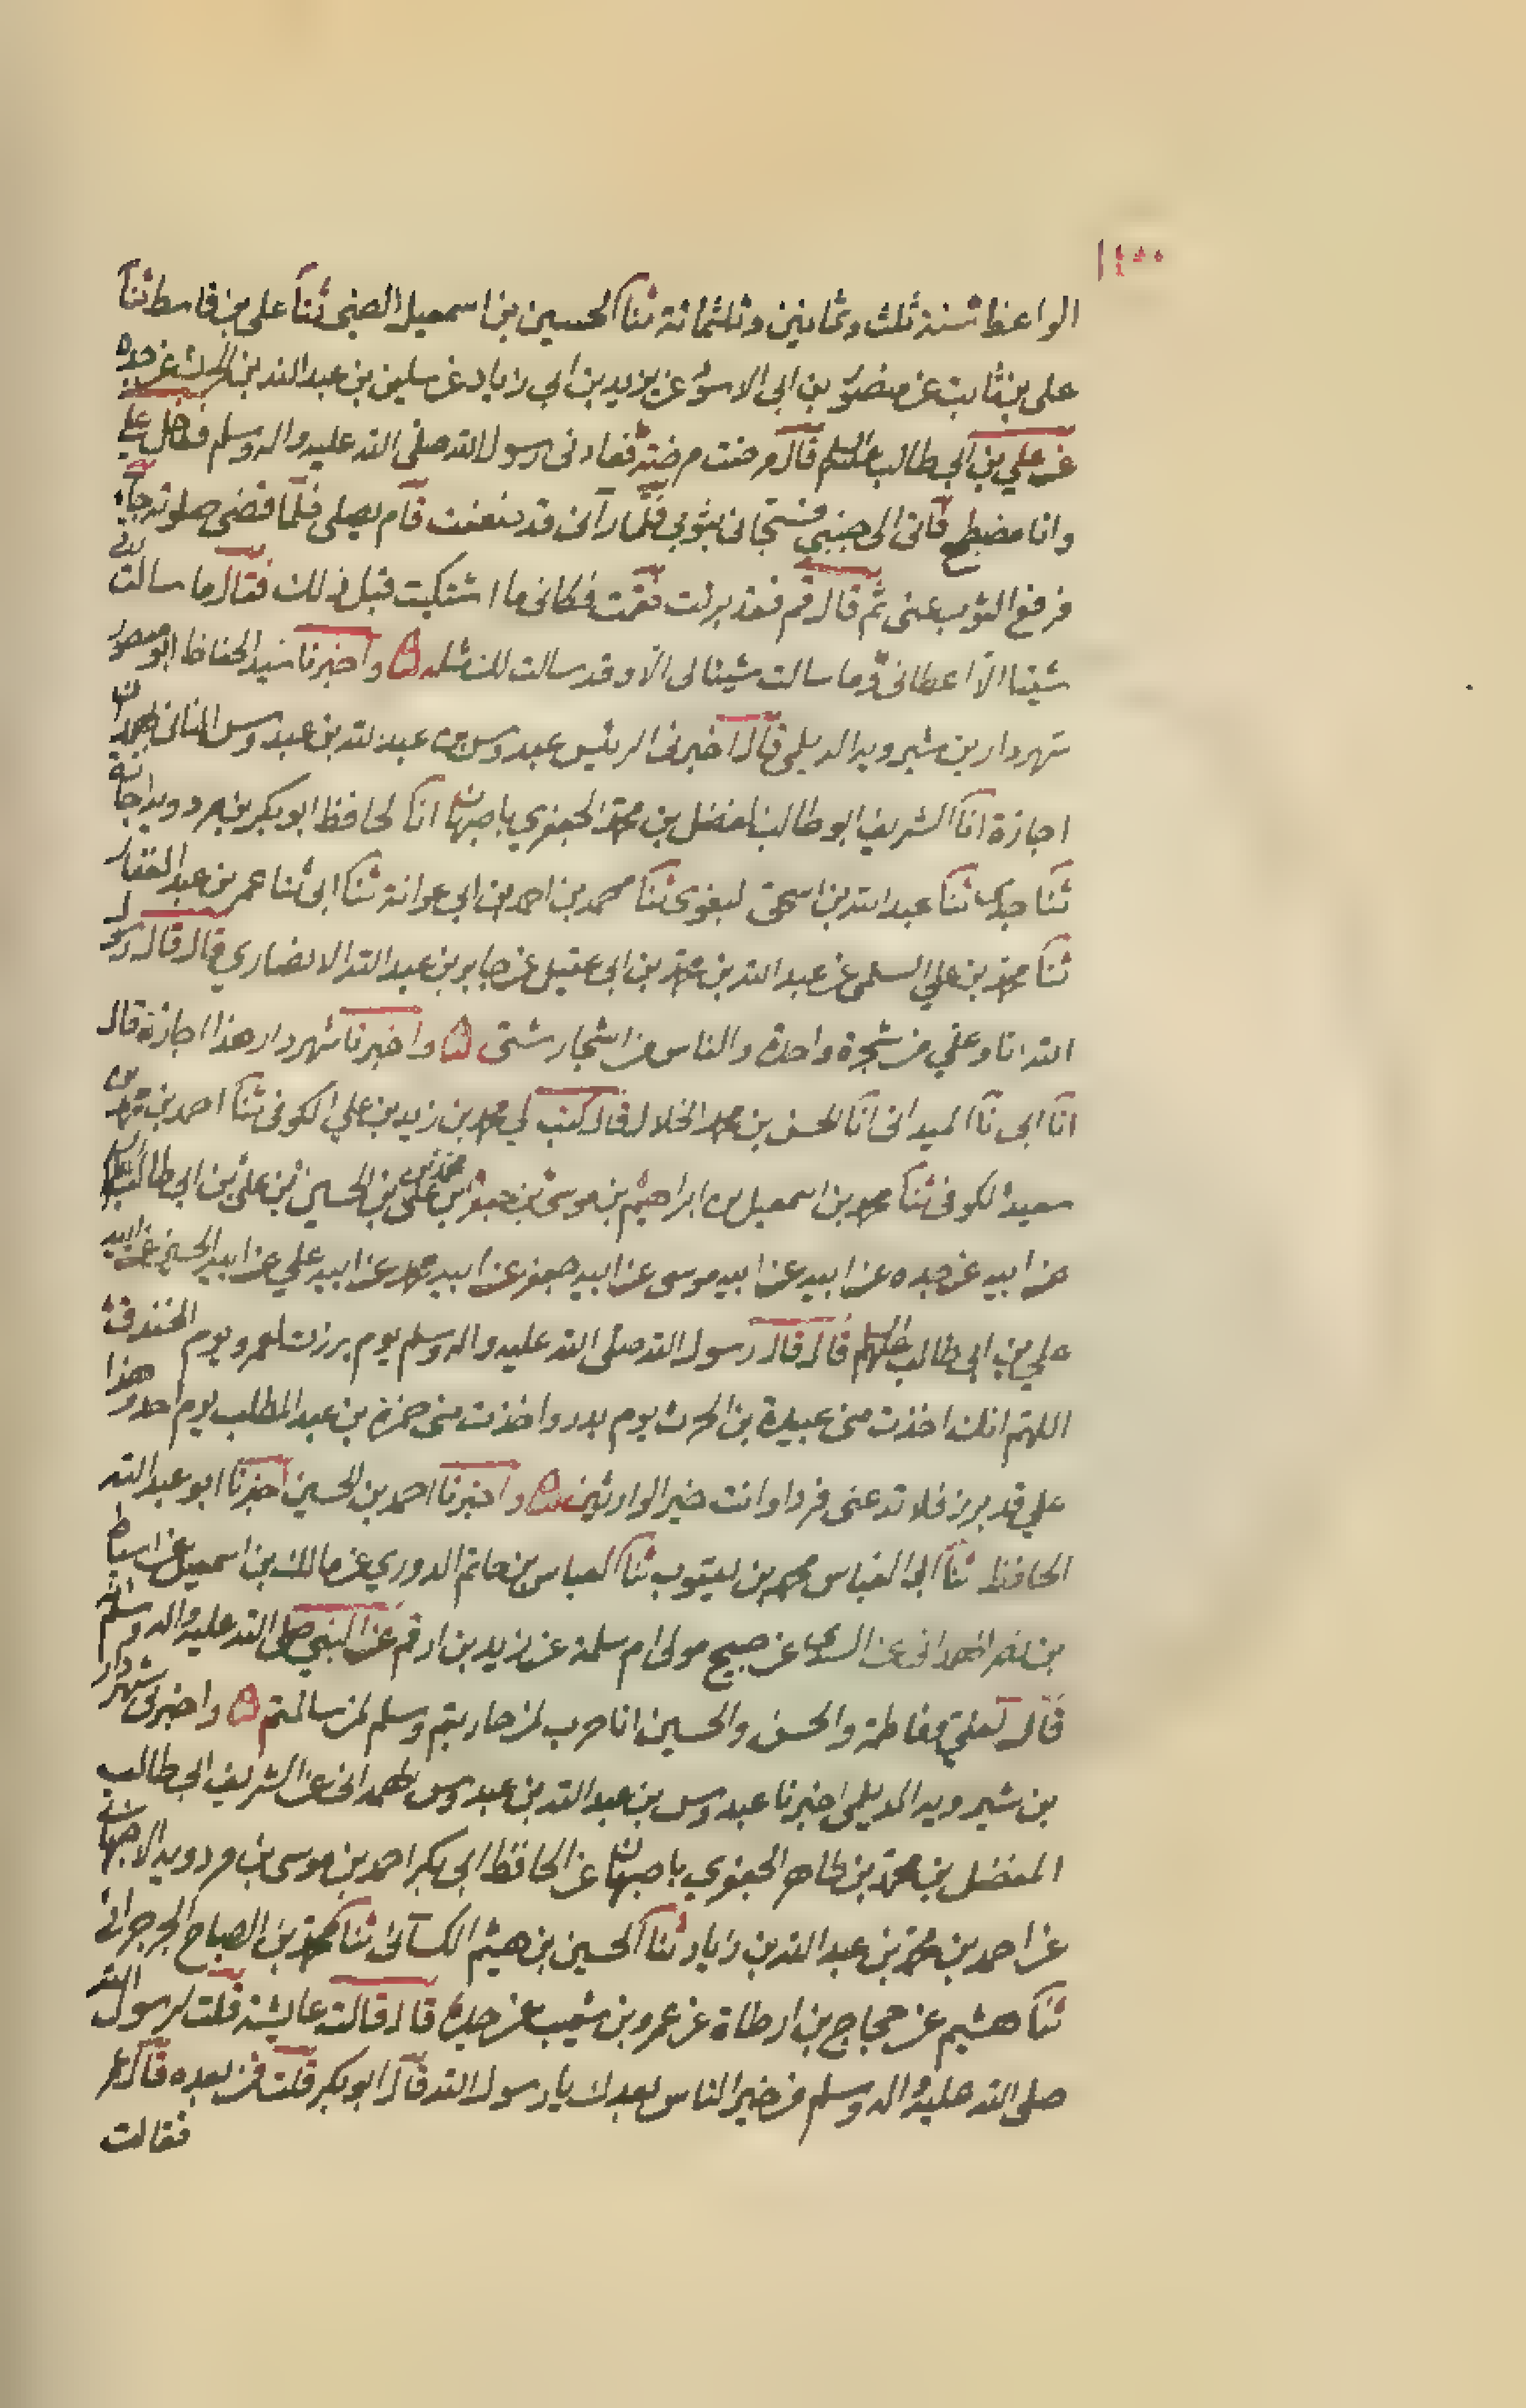 ١٤٠٠
الواعظ سنة ثلث وثمانين وثلثمائة ثنا الحسين بن اسمعيل الضبى ثنا على بن قاسط ثنا
على بن ثابت عن منصور بن ابى الاسود عن يزيد بن ابى زياد عن سليمن بن عبدالله بن الحرث عن جده
عن علي بن ابى طالب عليه السلم قال مرضت مرضة فعادنى رسول الله صلى الله عليه واله وسلم فدخل على
وانا مضطجع فاتى الى جنبى فسجانى بثوبى فلما رآنى قد ضعفت قام يصلى فلما قضى صلوته جاء
فرفع الثوب عنى ثم قال قم فقد برئت فقمت فكانى ما اشتكيت قبل ذلك فقال ما سالت ربى
شيئا الا اعطانى وما سالت شيئا لى الا وقد سالت لك مثله واخبرنا سيد الحفاظ ابو منصور
شهردار بن شيرويه الديلمى قال اخبرنى الرئيس عبدوس بن عبدالله بن عبدوس الهمدانى
اجازة انا الشريف ابو طالب المفضل بن محمد الجعفرى باصبهان انا الحافظ ابو بكر بن مردويه اجازة
ثنا جدى ثنا عبدالله بن اسحق البغوى ثنا محمد بن احمد بن ابى عوانة ثنا ابى ثنا عمر بن عبد الغفار
ثنا محمد بن علي السلمى عن عبدالله بن محمد بن ابى عقيل عن جابر بن عبدالله الانصاري قال قال رسول
الله انا وعلي من شجرة واحدة والناس من اشجار شتى واخبرنا شهردار هذا اجازة قال
انا ابى نا الميدانى انا الحسن بن محمد الخلال قال كتب لي محمد بن زيد بن علي الكوفى ثنا احمد بن محمد بن
سعيد الكوفى ثنا محمد بن اسمعيل بن ابراهيم بن موسى بن جعفر بن محمد بن على بن الحسين بن على بن ابى طالب
عن ابيه عن جده عن ابيه عن ابيه موسى عن ابيه جعفر عن ابيه محمد عن ابيه علي عن ابيه الحسين عن ابيه
علي بن ابى طالب عليهم السلم قال قال رسول الله صلى الله عليه واله وسلم يوم برزت لعمرو يوم الخندق
اللهم انك اخذت منى عبيدة بن الحرث يوم بدر واخذت منى حمزة بن عبد المطلب يوم احد وهذا
علي قد برز فلا تدعنى فردا وانت خير الوارثين واخبرنا احمد بن الحسين اخبرنا ابو عبد الله
الحافظ ثنا ابى العباس محمد بن يعقوب ثنا العباس بن حاتم الدوري عن مالك بن اسمعيل عن اسباط
بن نصر الهمدانى عن السدى عن صبيح مولى ام سلمة عن زيد بن ارقم عن النبي صلى الله عليه واله وسلم انه
قال لعلي وفاطمة والحسن والحسين انا حرب لمن حاربتم وسلم لمن سالمتم واخبرنى شهردار
بن شيرويه الديلمى اخبرنا عبدوس بن عبدالله بن عبدوس الهمدانى عن الشريف ابى طالب
المفضل بن محمد بن طاهر الجعفري باصبهان عن الحافظ ابى بكر احمد بن موسى بن مردويه الاصبهانى
عن احمد بن محمد بن عبدالله بن زياد ثنا الحسين بن هيثم الكسائى ثنا محمد بن الصباح الجرجرائى
ثنا هشيم عن حجاج بن ارطاة عن عمرو بن شعيب عن جده قال قالت عايشة قلت لرسول الله
صلى الله عليه واله وسلم من خير الناس بعدك يا رسول الله قال ابو بكر قلت فمن بعده قال عمر
فقالت